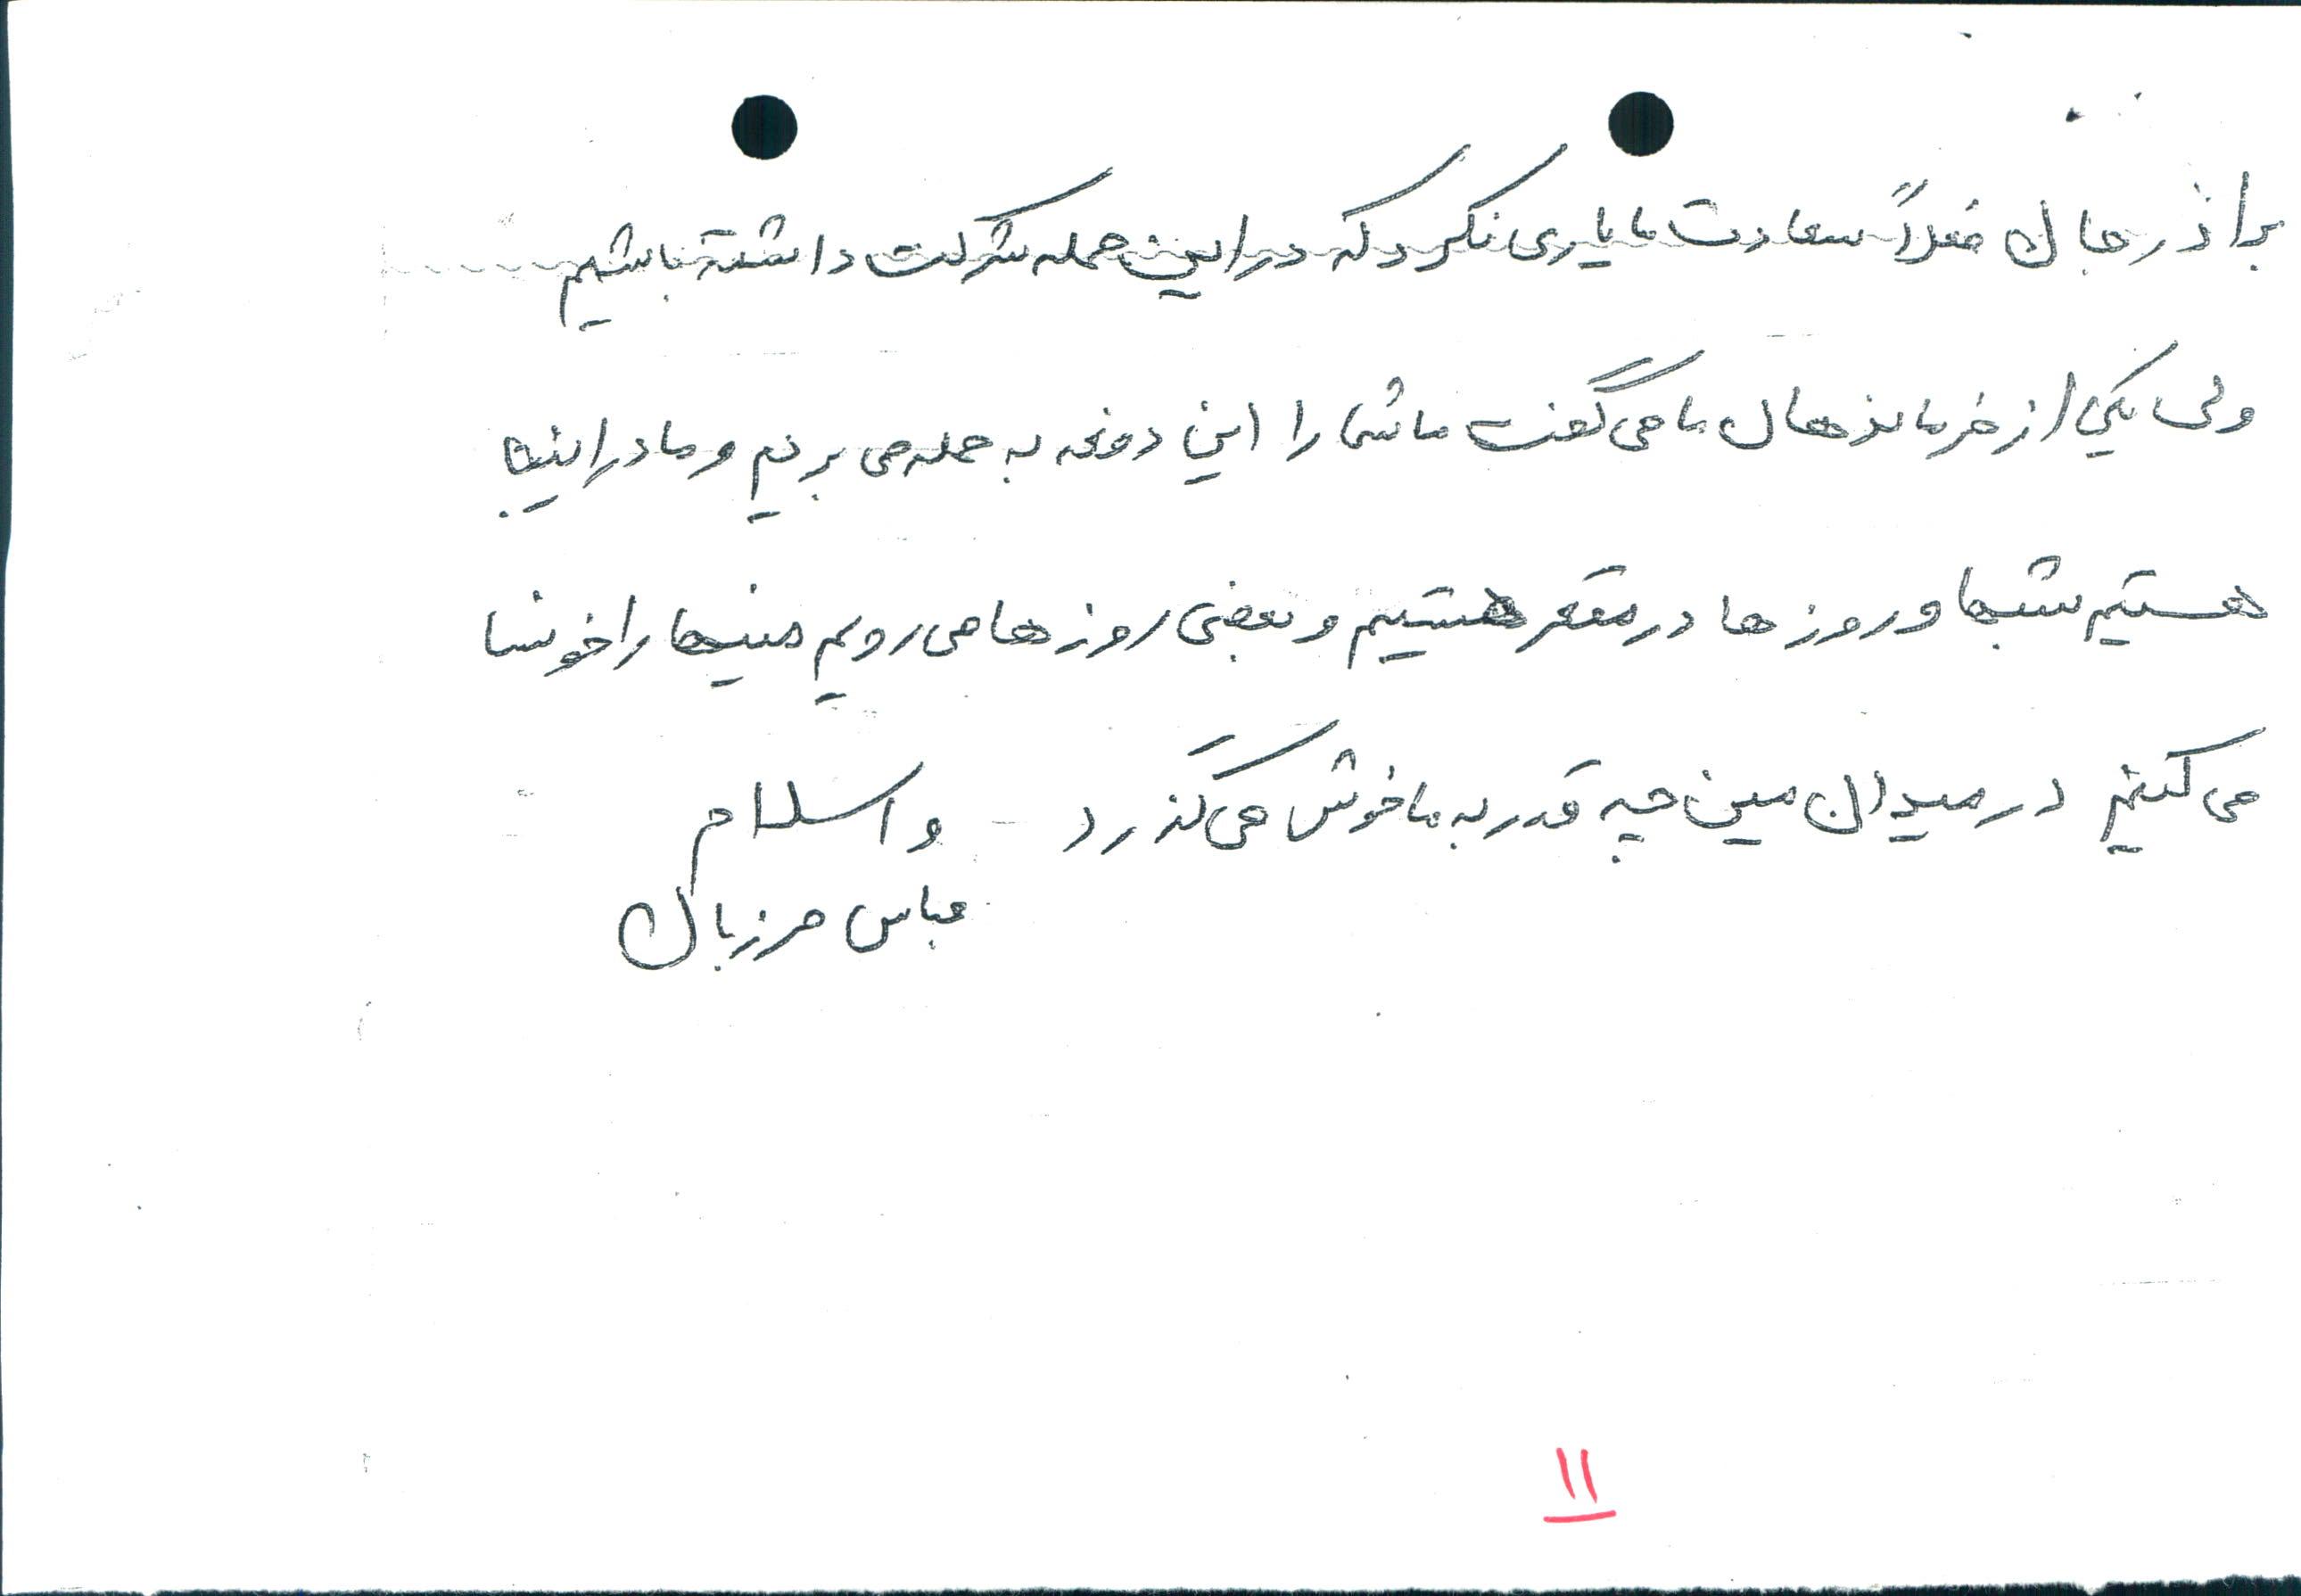 براذر جان فعلاً سعادت ما یاری نکرد که در این حمله شرکت داشته باشیم
ولی یکی از فرماندهان ما می گفت ما شما را این دفعه به حمله می بریم و ما در اینجا
هستیم شبها و روزها در مقر هستیم و بعضی روزها می رویم مینها را خونسا
می کنیم در میدان مین چه قدر به ما خوش می گذرد - واسلام
عباس مرزبان
۱۱